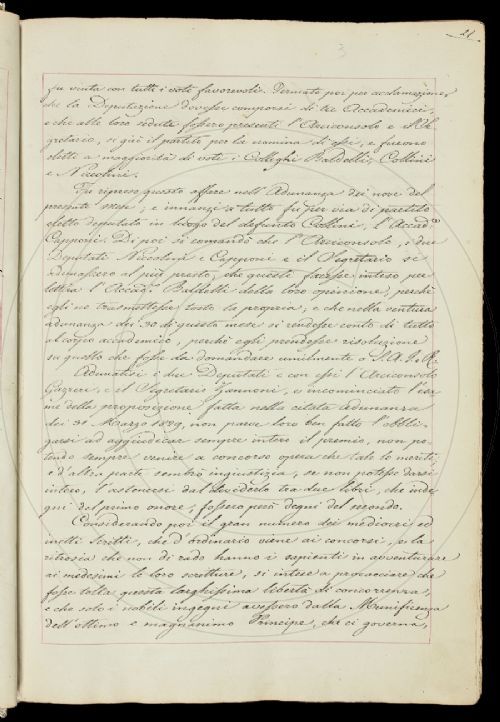 21
3
fu vinta con tutti i voti favorevoli. Fermato poi per acclamazione,
che la Deputazione dovesse comporsi di tre Accademici,
e che alle loro sedute fossero presenti l'Arciconsolo e il Se-
gretario, si gì il partito per la nomina di essi, e furono
eletti a maggiorità di voti i Colleghi Baldelli, Collini
e Niccolini.
Fu ripreso questo affare nell'Adunanza dei nove del
presente mese; e innanzi a tutto fu per via di partito
eletto deputato in luogo del defunto Collini, l'Accad.co
Capponi. Di poi si comandò che l'Arciconsolo, i due
Deputati Niccolini e Capponi e il Segretario si
adunassero al più presto, che questi facesse inteso per
lettera l'Accad. Baldelli della loro opinione, perchè
egli ne trasmettesse tosto la propria; e che nella ventura
adunanza dei 30 di questo mese si rendesse conto di tutto
al corpo accademico, perchè egli prendesse risoluzione
su quello che fosse da domandare umilmente a S. A. I. e R.
Adunatisi i due Deputati e con essi l'Arciconsolo
e il Segretario Zannoni, e incominciato l'esa-
me della proposizione fatta nella citata Adunanza
dei 31 Marzo 1829, non parve loro ben fatto l'obbli-
garsi ad aggiudicar sempre intero il premio, non po-
tendo sempre venire a concorso opera che tale lo meriti;
e d'altra parte sembrò ingiustizia, se non potesse darsi
intero, l'astenersi dal dividerlo tra due libri, che inde-
gni del primo onore, fossero però degni del secondo.
Considerando poi il gran numero dei mediocri ed
inetti scritti, che d'ordinario viene ai concorsi, e la
ritrosia che non di rado hanno i sapienti in avventurare
ai medesimi le loro scritture, si intese a procacciare che
fosse tolta questa larghissima libertà di concorrenza,
e che solo i nobili ingegni avessero dalla Munificenza
dell'ottimo e magnanimo Principe, che ci governa,